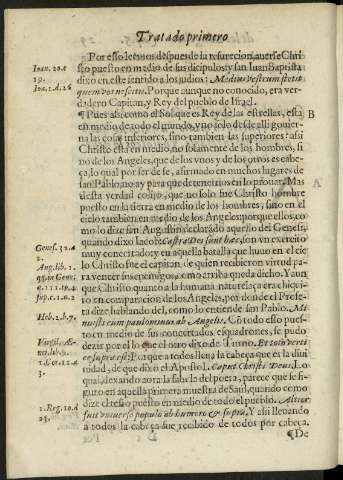 Tratado primero
Por esso leemos despues de la resurecion, auerse Chri
Ioan. 20.c
sto puesto en medio de sus dicipulos: y san Iuan Baptista
19.
dixo en este sentido a los judios: Medius vestrum stetit
Ioā. 1. d. 26
quem vos nescitis. Porque aunque no conocido, era ver
dadero Capitan, y Rey del pueblo de Israel.
¶ Pues assi como el Sol que es Rey de las estrellas, està
B
en medio de todo el mundo, y no solo desde alli gouier
na las cosas inferiores, sino tambien las superiores: assi
Christo està en medio, no solamente de los hombres, si
no de los Angeles, que de los vnos y de los otros es cabe
ça, lo qual por ser de fe, afirmado en muchos lugares de
san Pablo, no ay para que detenernos en lo prouar. Mas
A
desta verdad colijo, que no solo fue Christo hombre
puesto en la tierra en medio de los hombres, sino en el
cielo tambien en medio de los Angeles: porque ellos, co
mo lo dize san Augustin declarādo aquello del Genesi,
Genes. 32. a.
quando dixo Iacob: Castra Dei sunt hæc, son vn exercito
2.
muy concertado: y en aquella batalla que huuo en el cie
Aug. lib. 2.
lo Christo fue el capitan, de quien recibieron virtud pa
ra vencer sus enemigos, como arriba queda dicho. Y aun
que Christo quanto a la humana naturaleza era chiqui
to en comparacion de los Angeles, por donde el Profe
sup. c. 1. n. 2
ta dize hablando del, como lo entiende san Pablo. Mi
Heb. 2. b. 7.
nuisti eum paulominus ab Angelis. Cō todo esso pues
to en medio de sus concertados esquadrones, se pudo
dezir por el lo que el otro dixo de Turno. Et toto verti
ce supra est: Porque a todos lleua la cabeça que es la diui
nidad, de que dixo el Apostol. Caput Christi Deus. Lo
3
qual, dexando aora la fabula del poeta, parece que se fi-
guro en aquella primera muestra de Saul, quando como
dize el texto puesto en medio de todo el pueblo. Altior
1. Reg. 10. d
fuit vniuerso populo ab humero & supra. Y assi lleuando
23.
a todos la cabeça fue recibido de todos por cabeça.
¶ De